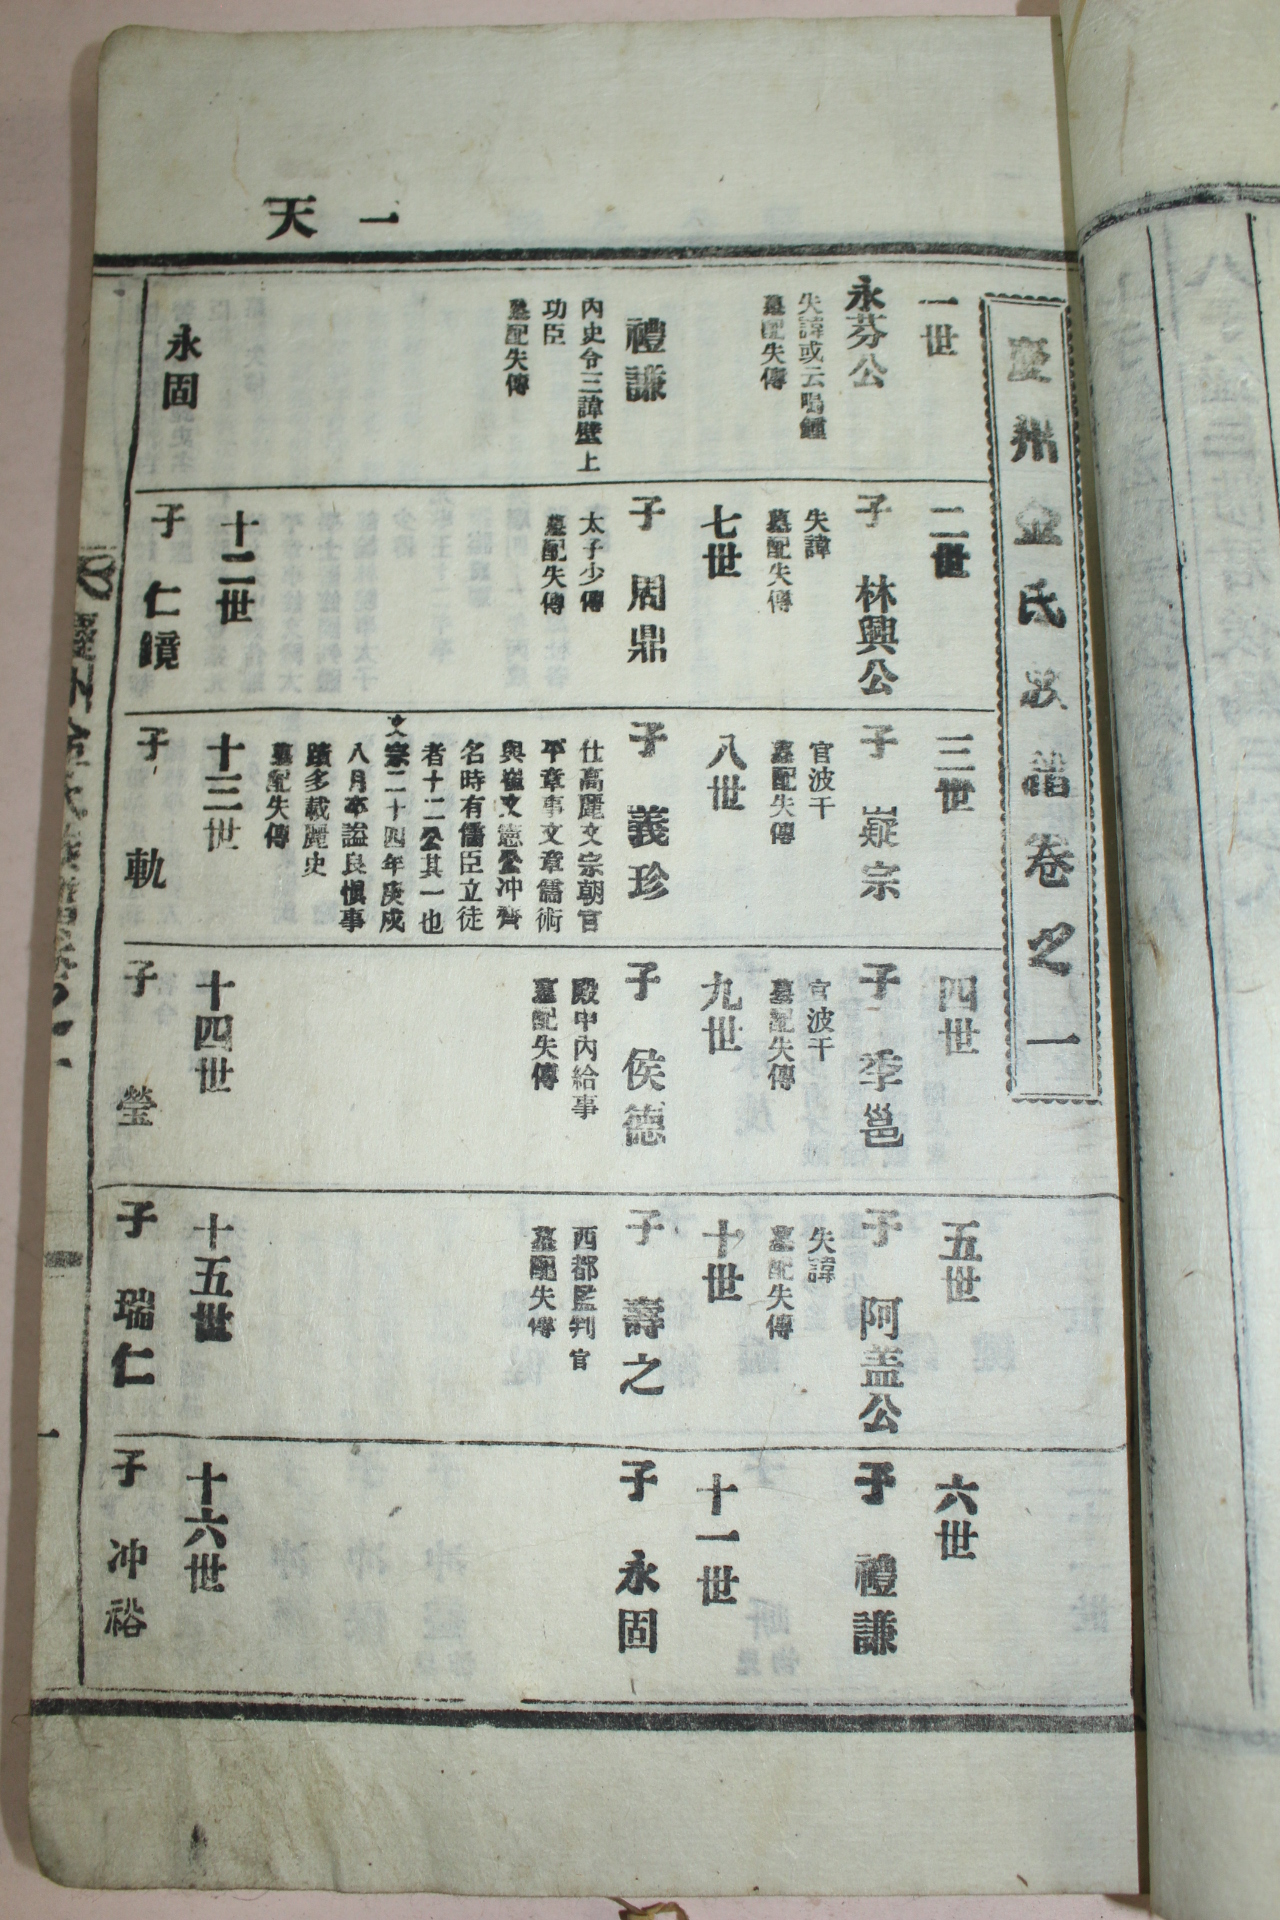 一天
慶州金氏族譜卷之一
一世
永芬公
失諱或云鳴鍾
墓配失傳
禮謙
內史令三諱壁上
功臣
墓配失傳
永固
二世
子 林興公
失諱
墓配失傳
七世
子 周鼎
太子少傳
墓配失傳
十二世
子 仁鏡
三世
子 嶷宗
官波干
墓配失傳
八世
子 義珍
仕高麗文宗朝官
平章事文章儒術
與崔文憲公冲齊
名時有儒臣立徒
者十二公其一也
文宗二十四年庚戌
八月卒諡良愼事
蹟多載麗史
墓配失傳
十三世
子 軌
四世
子 季邕
官波干
墓配失傳
九世
子 侯德
殿中內給事
墓配失傳
十四世
子 瑩
五世
子 阿盖公
失諱
墓配失傳
十世
子 壽之
西都監判官
墓配失傳
十五世
子 瑞仁
六世
子 禮謙
十一世
子 永固
十六世
子 冲裕
慶州金氏族譜卷之一
一